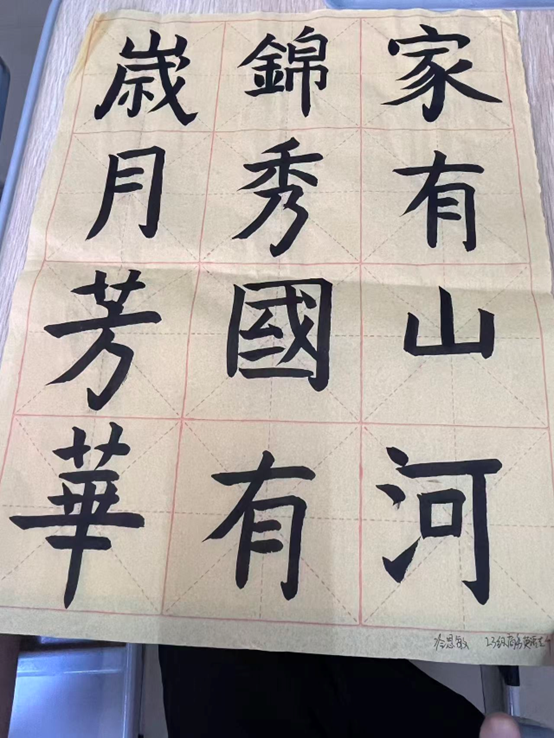 家有山河
錦秀國有
歲月芳華